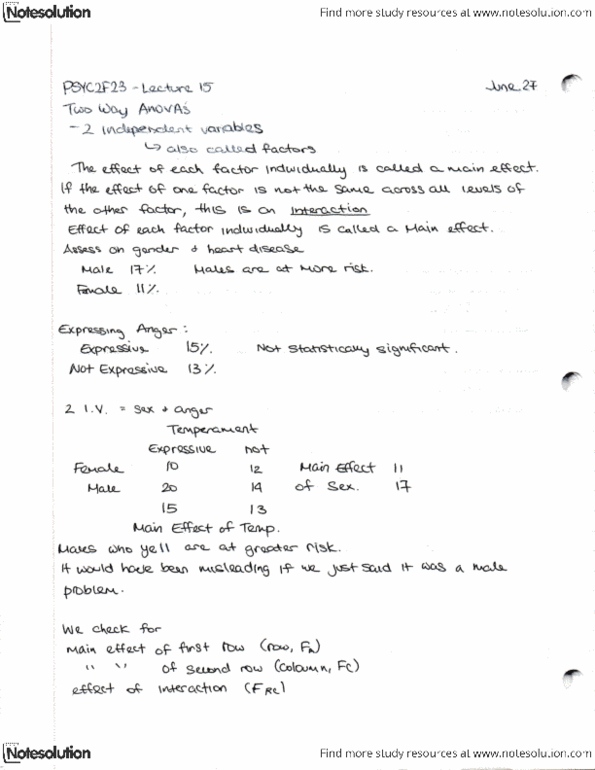 Notesolution
Find more study resources at www.notesolution.com
PSYC2F23 - Lecture 15 June 27
Two Way ANOVAs
- 2 independent variables
↳ also called factors
The effect of each factor individually is called a main effect.
If the effect of one factor is not the same across all levels of
the other factor, this is an interaction
Effect of each factor individually is called a Main effect.
Assess on gender + heart disease
Male 17% Males are at more risk.
Female 11%
Expressing Anger:
Expressive 15% Not statistically significant.
Not Expressive 13%
2 I.V. = sex + anger
Temperament
Expressive not
Female 10 12 Main Effect 11
Male 20 14 of Sex. 17
15 13
Main Effect of Temp.
Males who yell are at greater risk.
It would have been misleading if we just said it was a male
problem.
We check for
Main effect of first row (row, FR)
" " of second row (coloumn, FC)
effect of interaction (FRC)
Notesolution
Find more study resources at www.notesolution.com